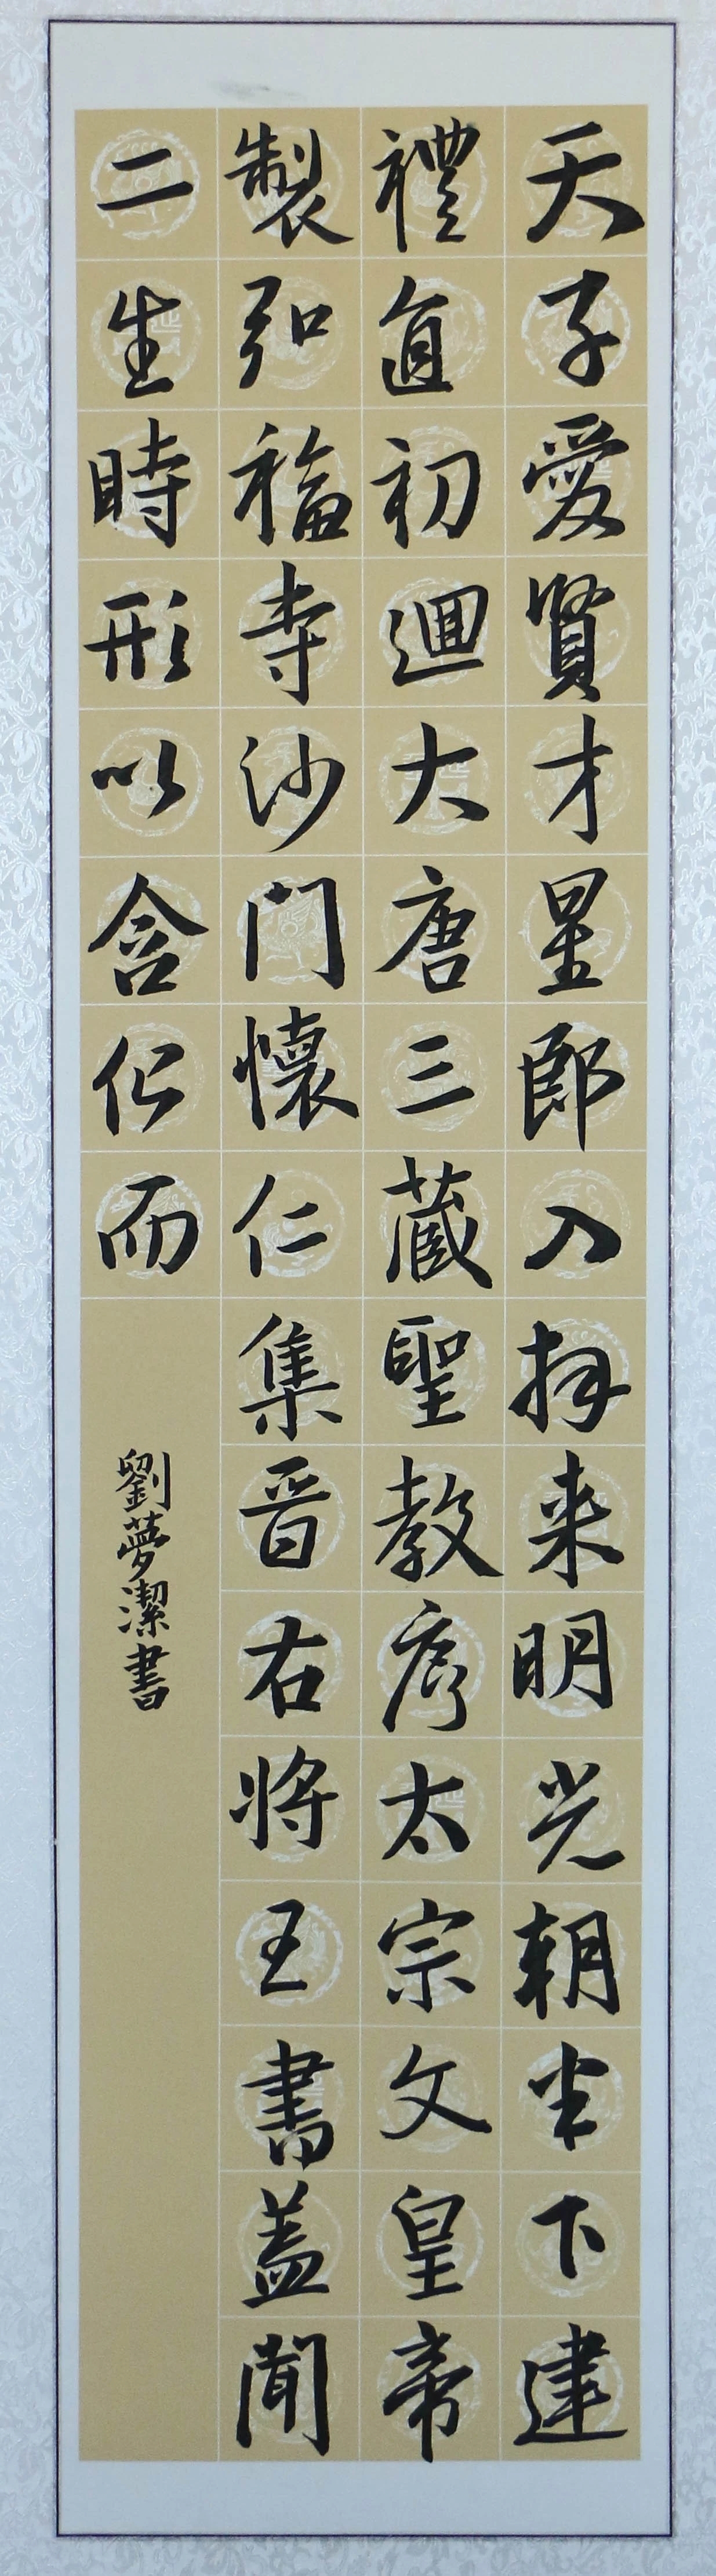 天子愛賢才星郎入拜来明光朝半下建
禮直初迴大唐三藏聖教序太宗文皇帝
製弘福寺沙門懷仁集晋右将王書盖聞
二生時形以含化而
劉夢潔書